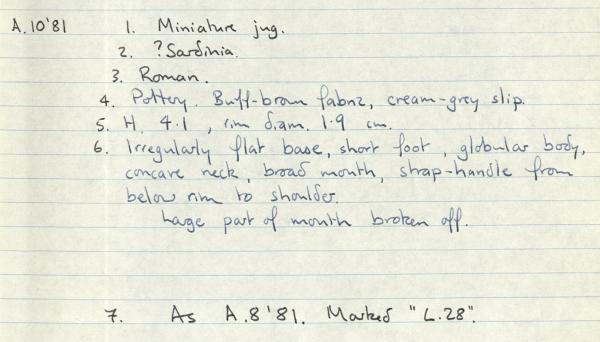 A.10'81 1. Miniature jug.
2. ?Sardinia.
3. Roman.
4. Pottery. Buff-brown fabric, cream-grey slip.
5. H. 4.1, rim diam. 1.9 cm.
6. Irregularly flat base, short foot, globular body,
concave neck, broad mouth, strap-handle from
below rim to shoulder.
Large part of mouth broken off.
7. As A.8'81. Marked "L.28".